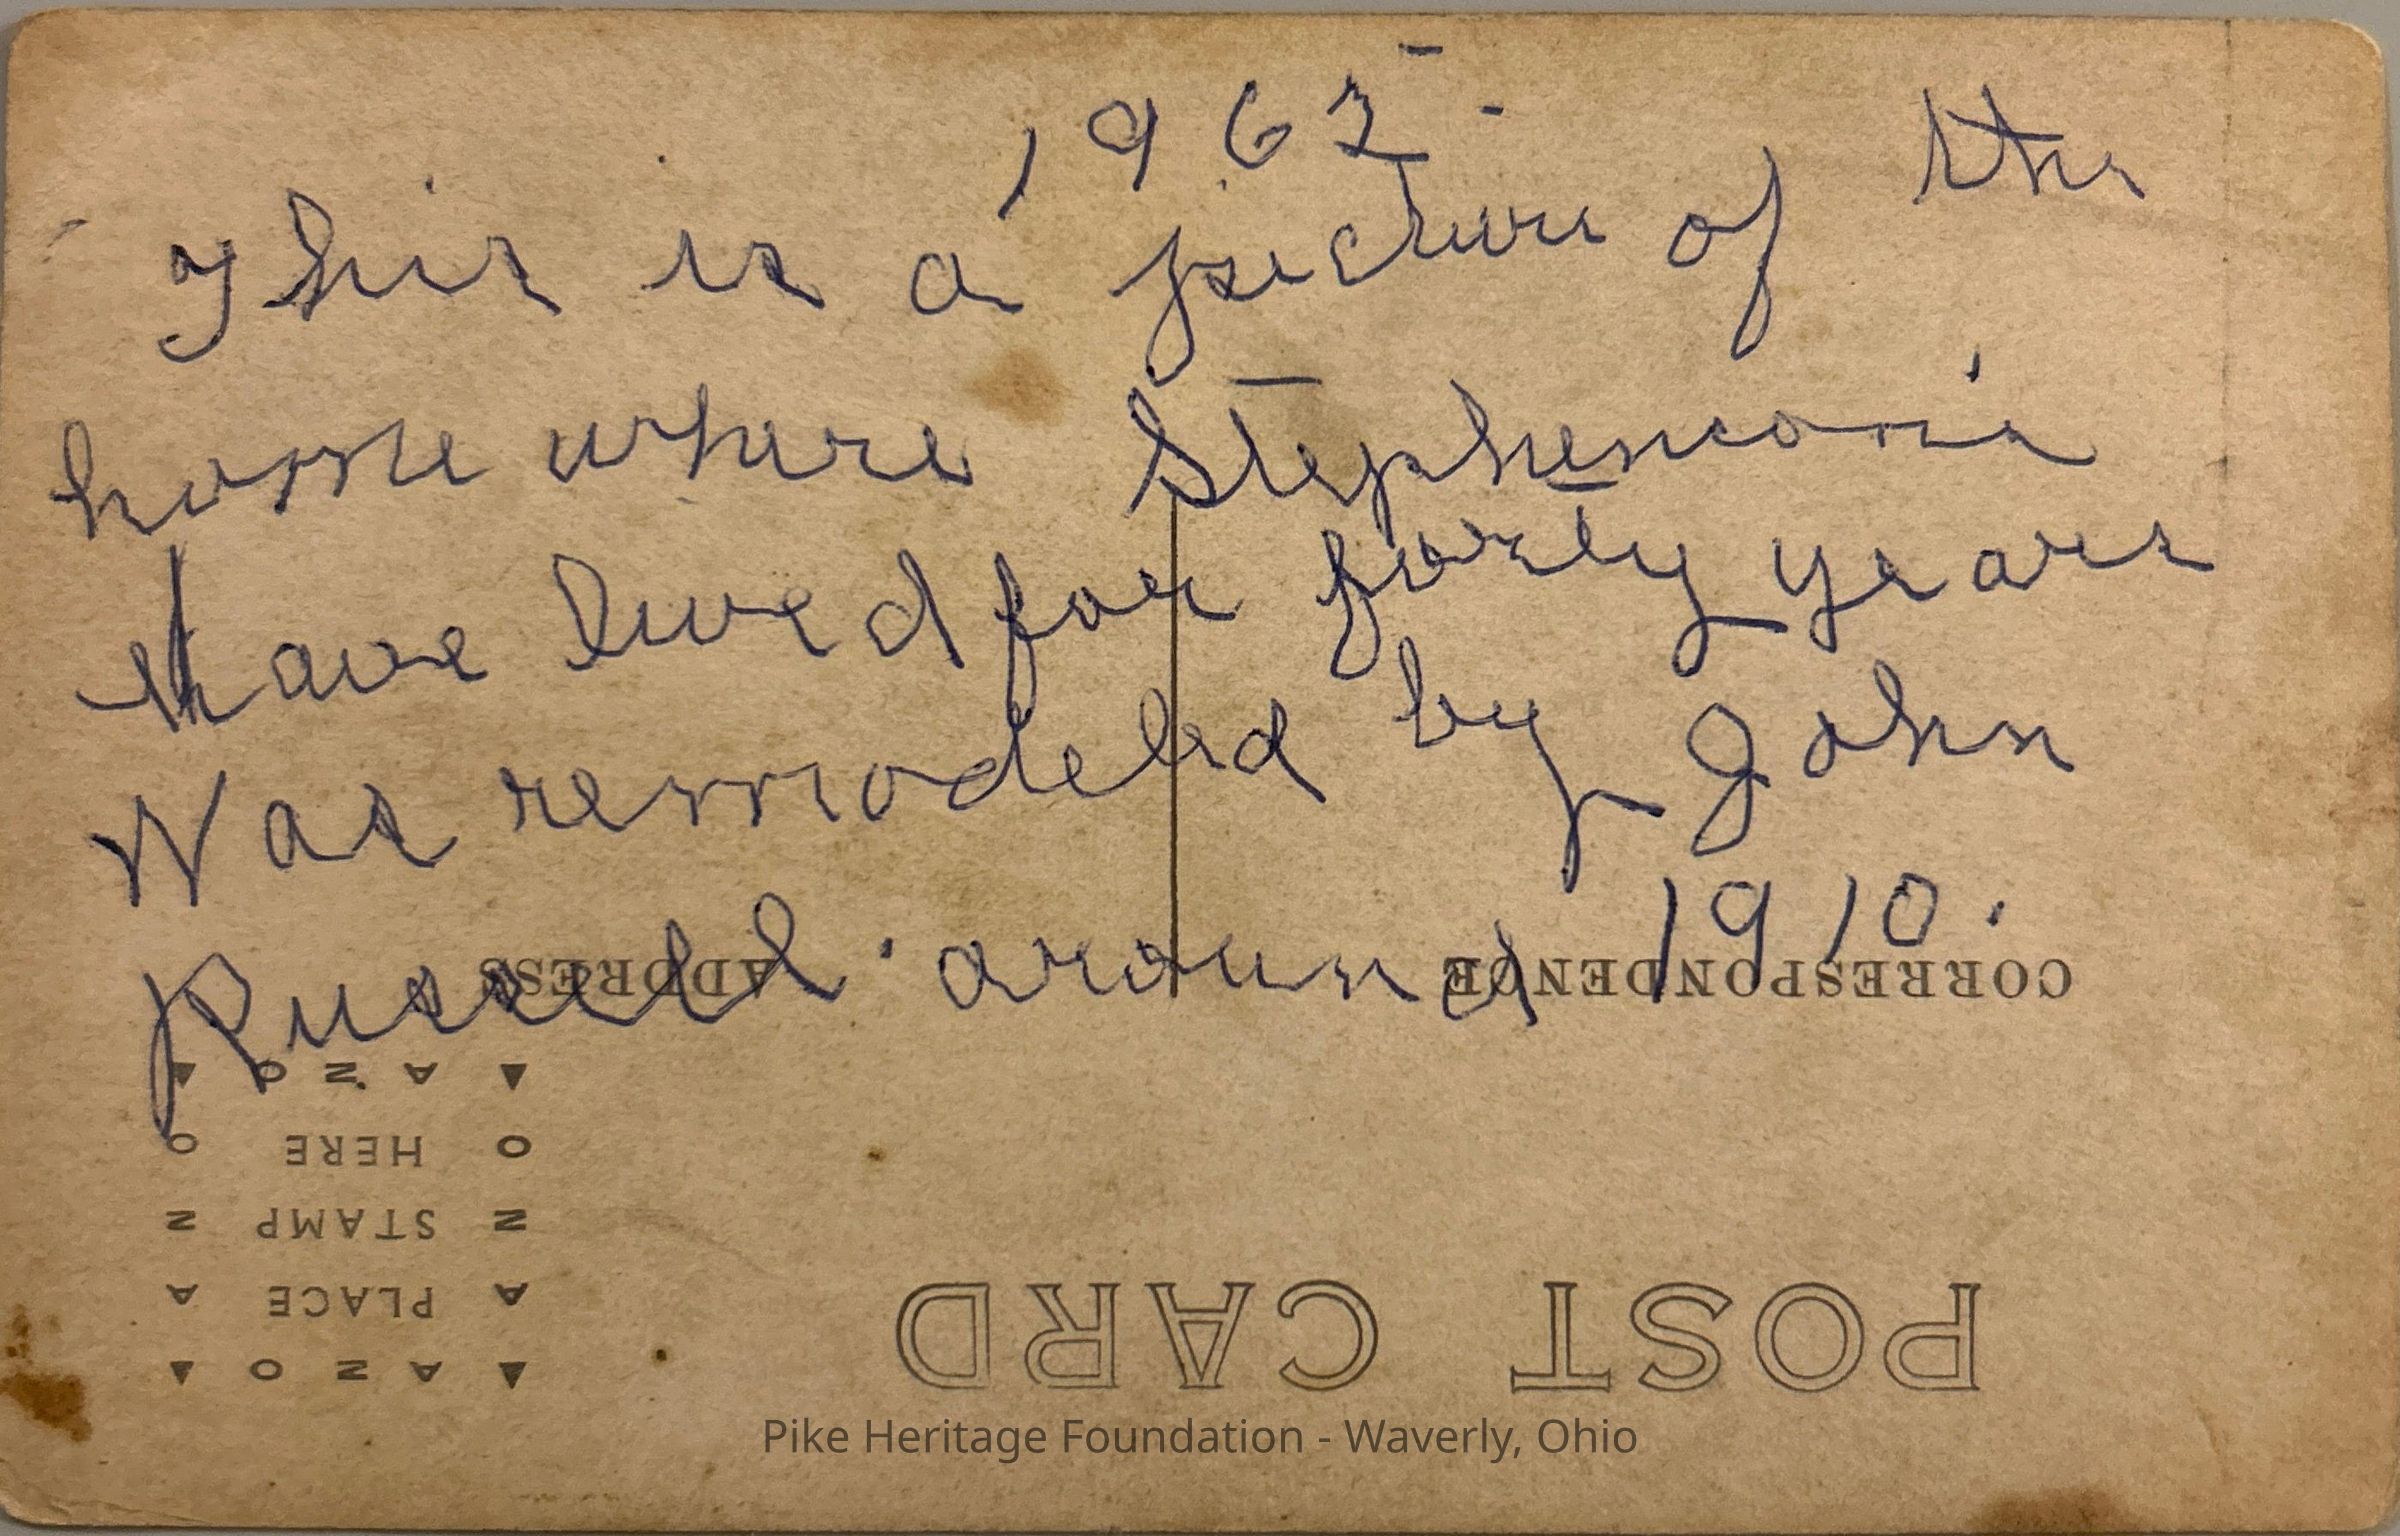 1962.
This is a picture of the
home where Stephenson's
have lived for forty years
Was remodeled by John
Russell. around 1910.
ADDRESS
CORRESPONDENCE
AZO
PLACE
STAMP
HERE
AZO
POST CARD
Pike Heritage Foundation - Waverly, Ohio